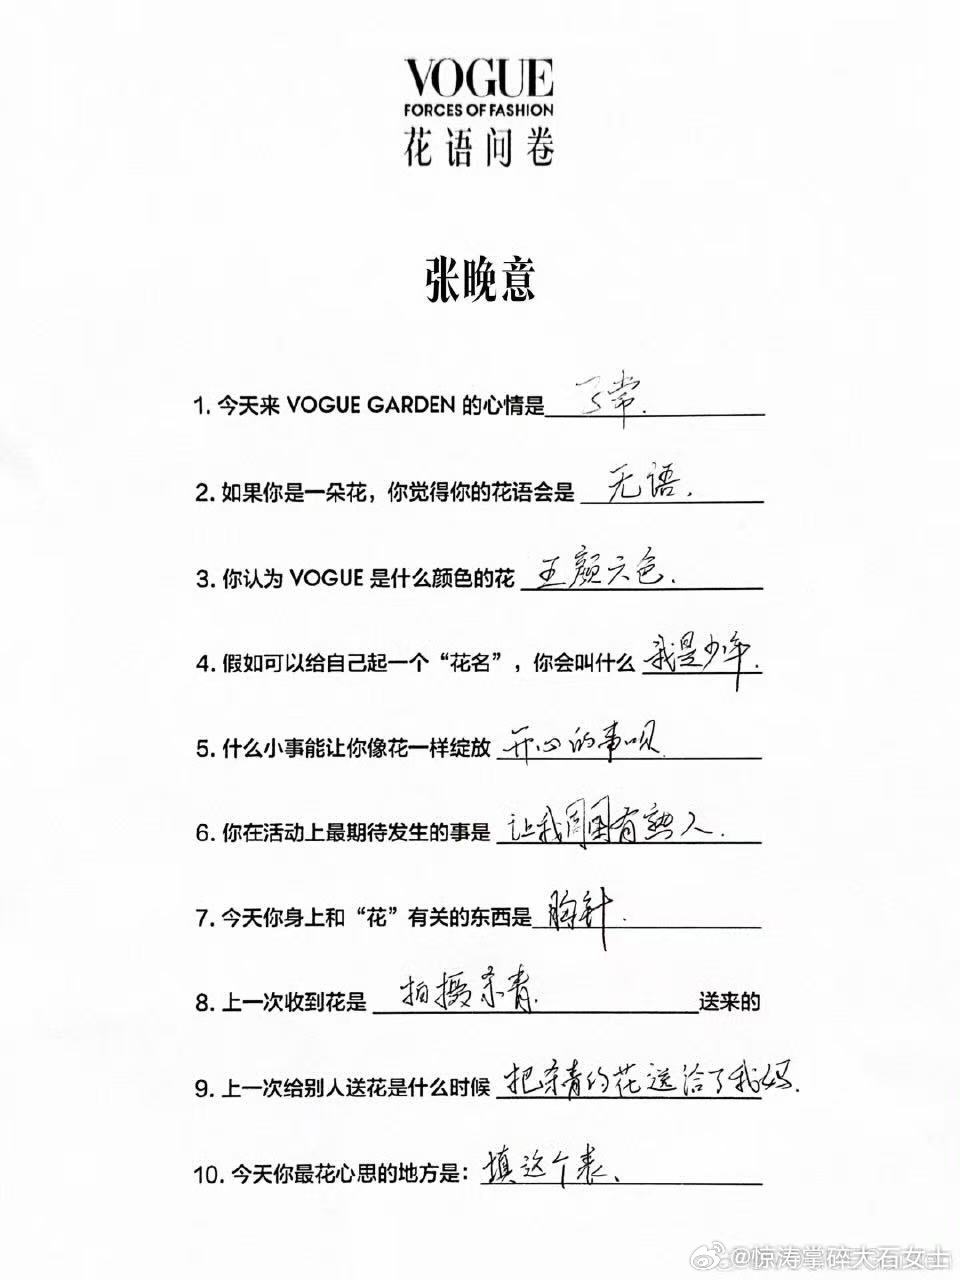 VOGUE
FORCES OF FASHION
花语问卷
张晚意
1. 今天来 VOGUE GARDEN 的心情是 常.
2. 如果你是一朵花，你觉得你的花语会是 无语.
3. 你认为 VOGUE 是什么颜色的花 五颜六色.
4. 假如可以给自己起一个“花名”，你会叫什么 我是少年.
5. 什么小事能让你像花一样绽放 开心的事呗
6. 你在活动上最期待发生的事是 让我周围有熟人.
7. 今天你身上和“花”有关的东西是 胸针.
8. 上一次收到花是 拍摄杀青. 送来的
9. 上一次给别人送花是什么时候 把杀青的花送给了我妈.
10. 今天你最花心思的地方是：填这个表.
@惊涛掌碎大石女士